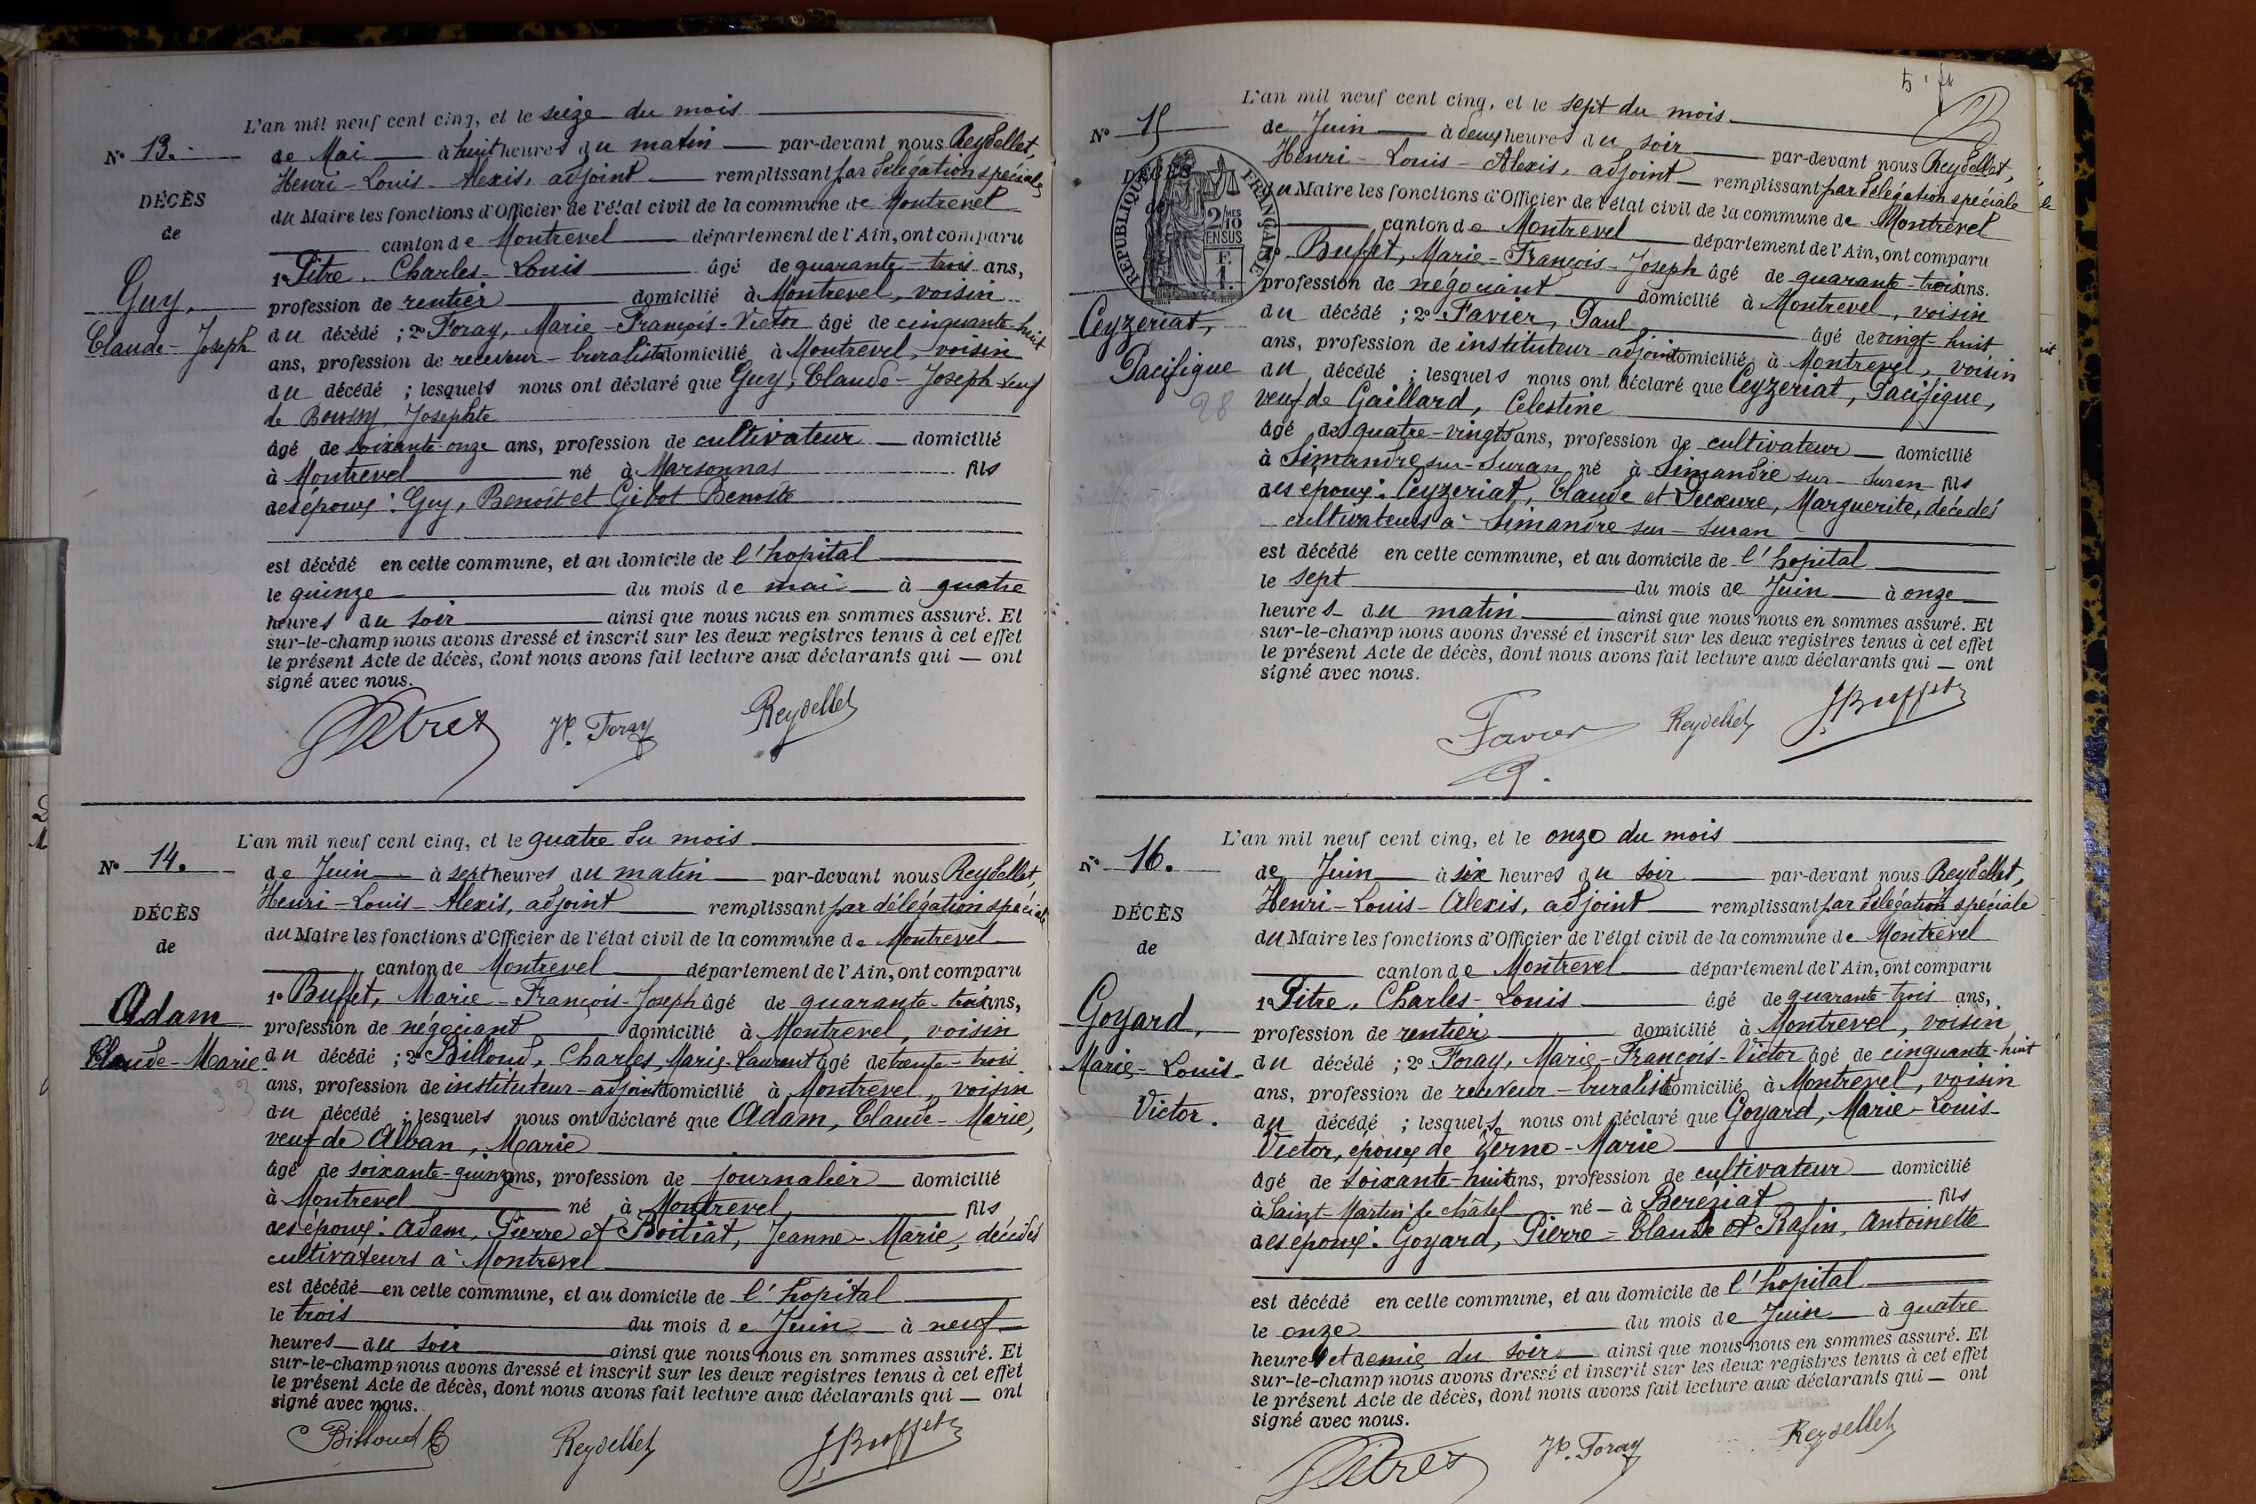 L'an mil neuf cent cinq, et le seize du mois
N° 13.
de Mai à huit heures du matin par-devant nous Reydellet,
Henri-Louis-Alexis, adjoint remplissant par délégation spéciale
DÉCÈS
du Maire les fonctions d'Officier de l'état civil de la commune de Montrevel
de
canton de Montrevel département de l'Ain, ont comparu
1° Pitre, Charles-Louis âgé de quarante-trois ans,
Guy,
profession de rentier domicilié à Montrevel, voisin
Claude-Joseph
du décédé ; 2° Foray, Marie-François-Victor âgé de cinquante-huit
ans, profession de receveur-buraliste domicilié à Montrevel, voisin
du décédé ; lesquels nous ont déclaré que Guy, Claude-Joseph veuf
de Josephte
âgé de soixante-onze ans, profession de cultivateur domicilié
à Montrevel né à Marsonnas fils
des époux : Guy, Benoît et Gibot Benoîte
est décédé en cette commune, et au domicile de l'hopital
le quinze du mois de mai à quatre
heures du soir ainsi que nous nous en sommes assuré. Et
sur-le-champ nous avons dressé et inscrit sur les deux registres tenus à cet effet
le présent Acte de décès, dont nous avons fait lecture aux déclarants qui — ont
signé avec nous.
Pitre V. Foray Reydellet
L'an mil neuf cent cinq, et le quatre du mois
N° 14.
de Juin à sept heures du matin par-devant nous Reydellet,
Henri-Louis-Alexis, adjoint remplissant par délégation spéciale
DÉCÈS
du Maire les fonctions d'Officier de l'état civil de la commune de Montrevel
de
canton de Montrevel département de l'Ain, ont comparu
1° Buffet, Marie-François-Joseph âgé de quarante-trois ans,
Adam
profession de négociant domicilié à Montrevel, voisin
Claude-Marie
du décédé ; 2° Billoud, Charles, Marie-Laurent âgé de trente-trois
ans, profession de instituteur-adjoint domicilié à Montrevel, voisin
du décédé ; lesquels nous ont déclaré que Adam, Claude-Marie,
veuf de Alban, Marie
âgé de soixante-quinze ans, profession de journalier domicilié
à Montrevel né à Montrevel fils
des époux : Adam, Pierre et Jeanne-Marie, décédés
cultivateurs à Montrevel
est décédé en cette commune, et au domicile de l'hopital
le trois du mois de Juin à neuf
heures du soir ainsi que nous nous en sommes assuré. Et
sur-le-champ nous avons dressé et inscrit sur les deux registres tenus à cet effet
le présent Acte de décès, dont nous avons fait lecture aux déclarants qui — ont
signé avec nous.
Billoud Reydellet J Buffet
5
L'an mil neuf cent cinq, et le sept du mois
N° 15
de Juin à deux heures du soir par-devant nous Reydellet,
Henri-Louis-Alexis, adjoint remplissant par délégation spéciale
DÉCÈS
du Maire les fonctions d'Officier de l'état civil de la commune de Montrevel
de
RÉPUBLIQUE FRANÇAISE
2/10 MES
EN SUS
F.
1.
canton de Montrevel département de l'Ain, ont comparu
1° Buffet, Marie-François-Joseph âgé de quarante-trois ans.
profession de négociant domicilié à Montrevel, voisin
Ceyzeriat,
du décédé ; 2° Favier, Paul âgé de vingt-huit
ans, profession de instituteur-adjoint domicilié à Montrevel, voisin
Pacifique
du décédé ; lesquels nous ont déclaré que Ceyzeriat, Pacifique,
28
veuf de Gaillard, Celestine
âgé de quatre-vingts ans, profession de cultivateur domicilié
à Simandre sur-Suran né à Simandre sur-Suran fils
des époux : Ceyzeriat, Claude et Marguerite, décédés
cultivateurs à Simandre sur-Suran
est décédé en cette commune, et au domicile de l'hopital
le sept du mois de Juin à onze
heures du matin ainsi que nous nous en sommes assuré. Et
sur-le-champ nous avons dressé et inscrit sur les deux registres tenus à cet effet
le présent Acte de décès, dont nous avons fait lecture aux déclarants qui — ont
signé avec nous.
Favier Reydellet J Buffet
L'an mil neuf cent cinq, et le onze du mois
N° 16.
de Juin à six heures du soir par-devant nous Reydellet,
Henri-Louis-Alexis, adjoint remplissant par délégation spéciale
DÉCÈS
du Maire les fonctions d'Officier de l'état civil de la commune de Montrevel
de
canton de Montrevel département de l'Ain, ont comparu
1° Pitre, Charles-Louis âgé de quarante-trois ans,
Goyard,
profession de rentier domicilié à Montrevel, voisin
Marie-Louis-
du décédé ; 2° Foray, Marie-François-Victor âgé de cinquante-huit
ans, profession de receveur-buraliste domicilié à Montrevel, voisin
Victor.
du décédé ; lesquels nous ont déclaré que Goyard, Marie-Louis-
Victor, époux de Verne-Marie
âgé de soixante-huit ans, profession de cultivateur domicilié
à Saint-Martin le châtel né à Béréziat fils
des époux : Goyard, Pierre-Claude et Rafin, Antoinette
est décédé en cette commune, et au domicile de l'hopital
le onze du mois de Juin à quatre
heures et demie du soir ainsi que nous nous en sommes assuré. Et
sur-le-champ nous avons dressé et inscrit sur les deux registres tenus à cet effet
le présent Acte de décès, dont nous avons fait lecture aux déclarants qui — ont
signé avec nous.
Pitre V. Foray Reydellet